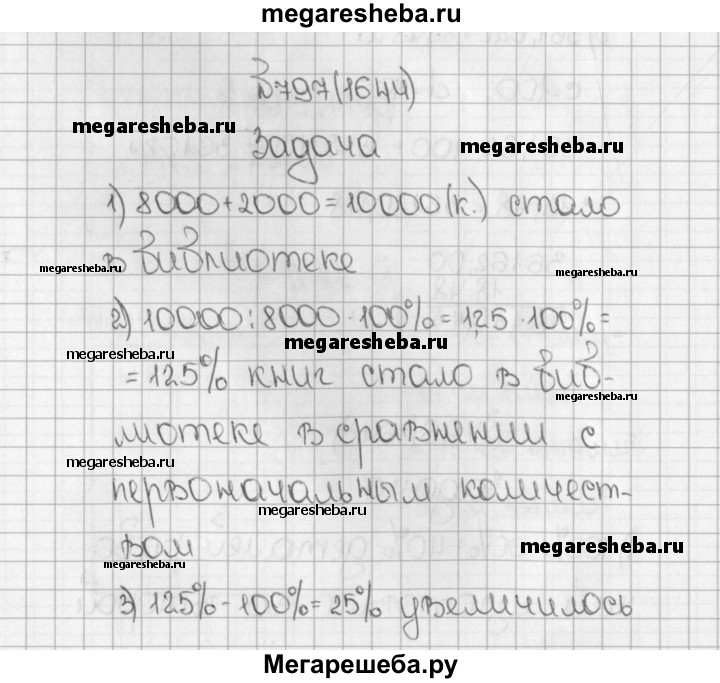 megaresheba.ru
№797(1644)
megaresheba.ru
Задача
megaresheba.ru
1) 8000+2000=10000(к.) стало
в библиотеке
megaresheba.ru
megaresheba.ru
2) 10000:8000·100%=1,25·100%=
megaresheba.ru
megaresheba.ru
=125% книг стало в биб-
megaresheba.ru
лиотеке в сравнении с
megaresheba.ru
первоначальным количест-
megaresheba.ru
вом
megaresheba.ru
megaresheba.ru
3) 125%-100%=25% увеличилось
Мегарешеба.ру